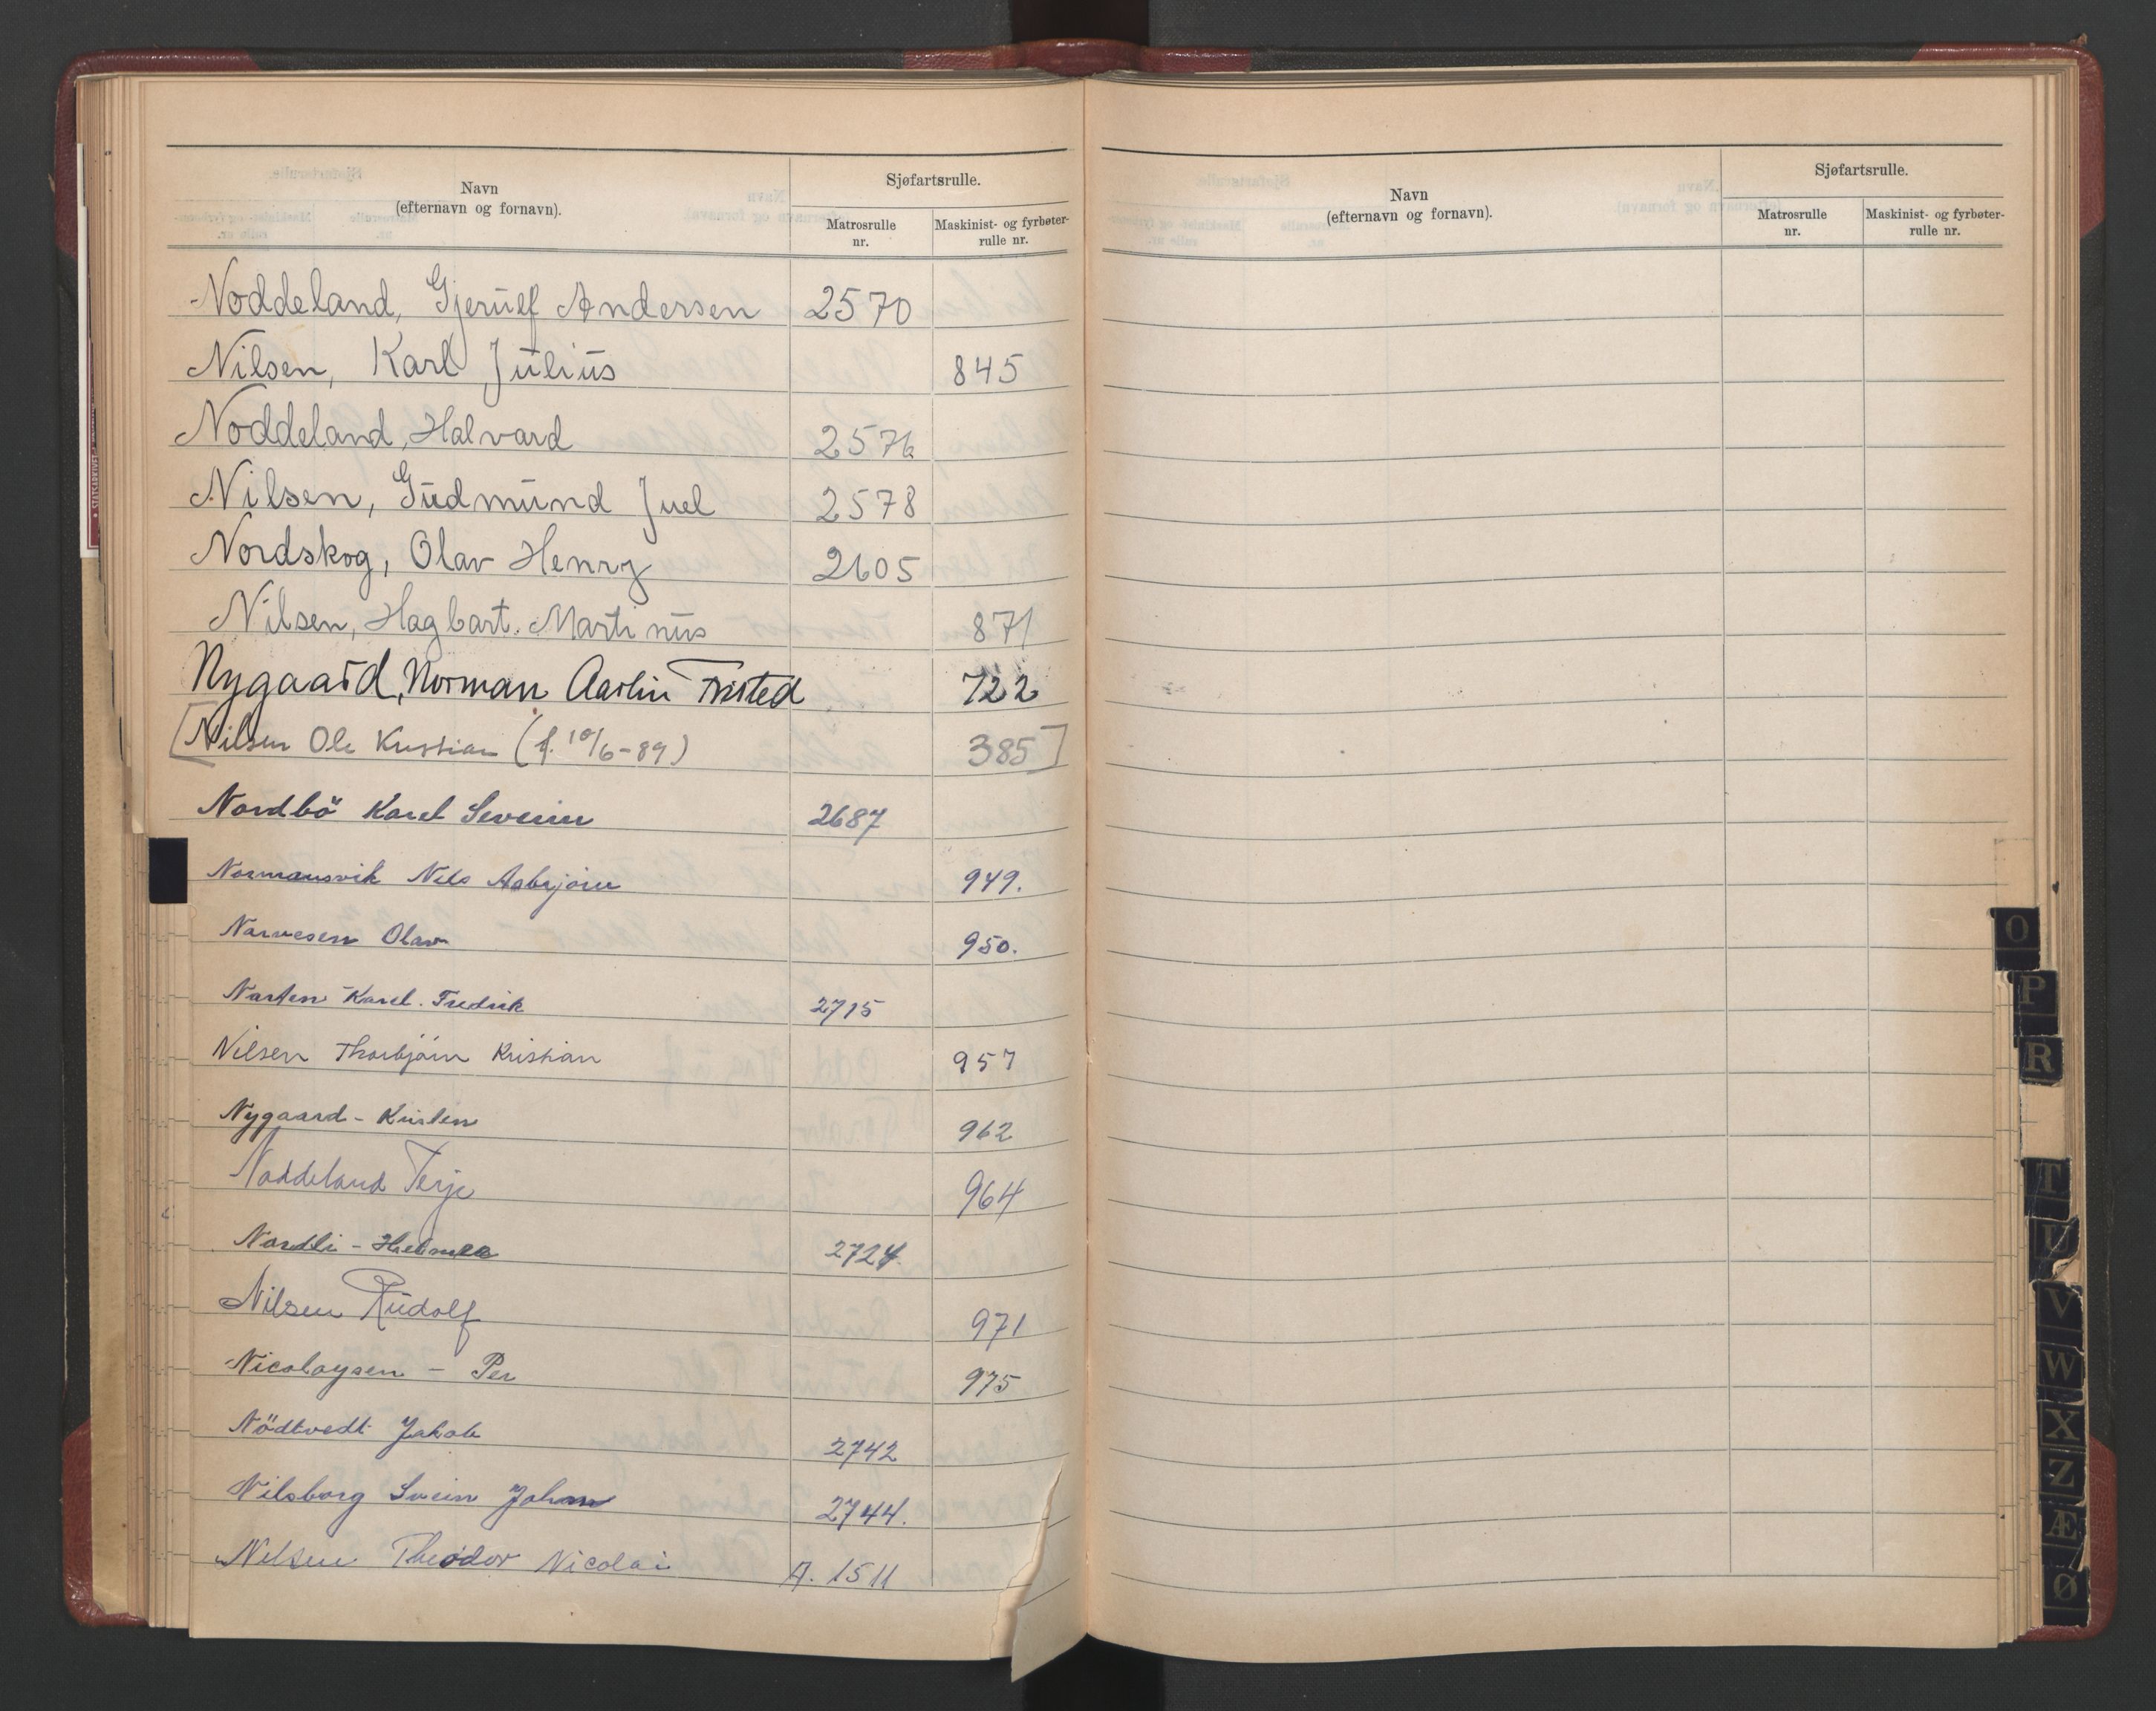 Navn
(efternavn og fornavn).
Sjøfartsrulle.
Matrosrulle
nr.
Maskinist- og fyrbøter-
rulle nr.
Noddeland, Gjerulf Andersen 2570
Nilsen, Karl Julius 845
Noddeland, Halvard 2576
Nilsen, Gudmund Juel 2578
Nordskog, Olav Henry 2605
Nilsen, Hagbart. Martinus 871
Nygaard, Norman 722
[Nilsen Ole Kristian (f. 10/6-89) 385]
Nordbö Karel Severin 2687
Normansvik Nils Asbrjörn 949.
Narvesen Olav 950.
Narten Karel. Fredrik 2715
Nilsen Thorbjörn Kristian 957
Nygaard - Kristen 962
Noddeland Terje 964
Nordli - 2724.
Nilsen Rudolf 971
Nicolaysen - Per 975
Nödtvedt Jakob 2742
Nilsborg Svein Johan 2744.
Nilsen Theodor Nicolai A. 1511
Navn
(efternavn og fornavn).
Sjøfartsrulle.
Matrosrulle
nr.
Maskinist- og fyrbøter-
rulle nr.
O
P
R
T
U
V
W
X
Z
Æ
Ø